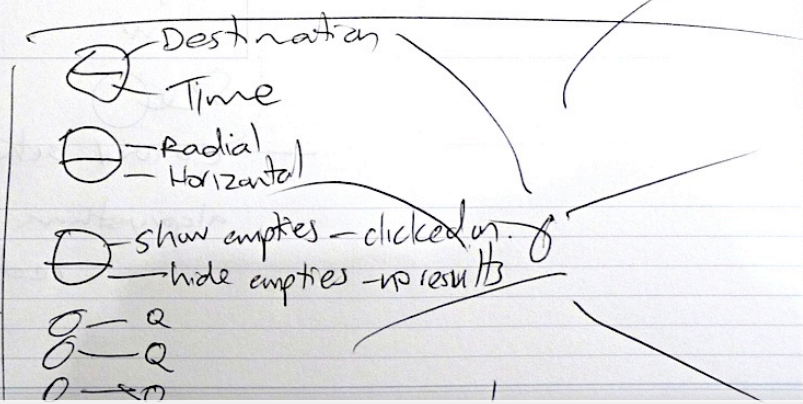 Destination
Time
Radial
Horizontal
show empties - clicked on.
hide empties - no results
Q
Q